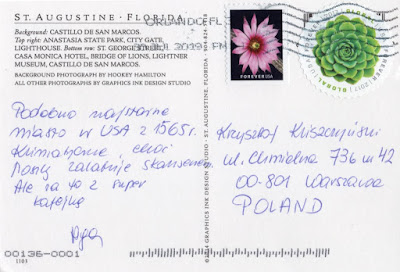 ST. AUGUSTINE • FLORIDA
Background: CASTILLO DE SAN MARCOS.
Top right: ANASTASIA STATE PARK, CITY GATE,
LIGHTHOUSE. Bottom row: ST. GEORGE STREET,
CASA MONICA HOTEL, BRIDGE OF LIONS, LIGHTNER
MUSEUM, CASTILLO DE SAN MARCOS.
BACKGROUND PHOTOGRAPH BY HOOKEY HAMILTON
ALL OTHER PHOTOGRAPHS BY GRAPHICS INK DESIGN STUDIO
ORLANDO FL
30 JUL 2019 PM
FOREVER USA
GLOBAL
Podobno najstarsze
miasto w USA z 1565r.
Klimatyczne choć
zalatuje skansenem.
Ale na to z super
Krzysztof
ul. Chmielna 73b m 42
00-801 Warszawa
POLAND
GRAPHICS INK DESIGN STUDIO • ST. AUGUSTINE, FL
00136-0001
1103